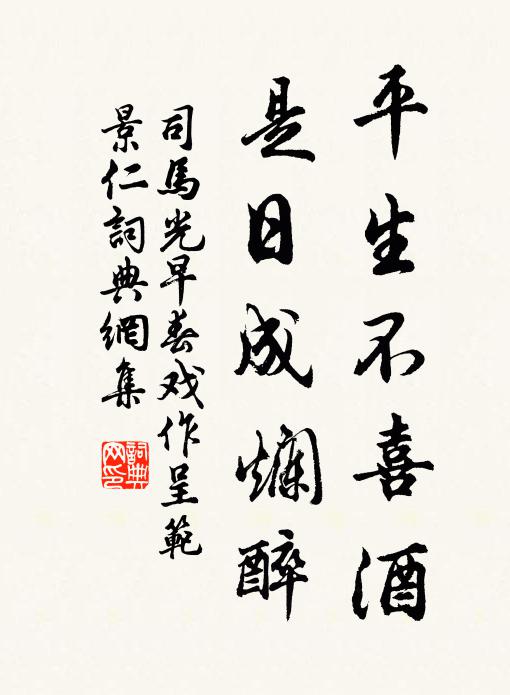 平生不喜酒
是日成爛醉
司馬光早春戏作呈範
景仁詞典網集
詞典
网印